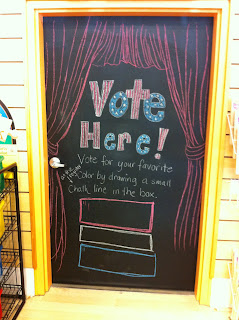 Vote
Here!
Vote for your favorite
Color by drawing a small
Chalk line in the box.